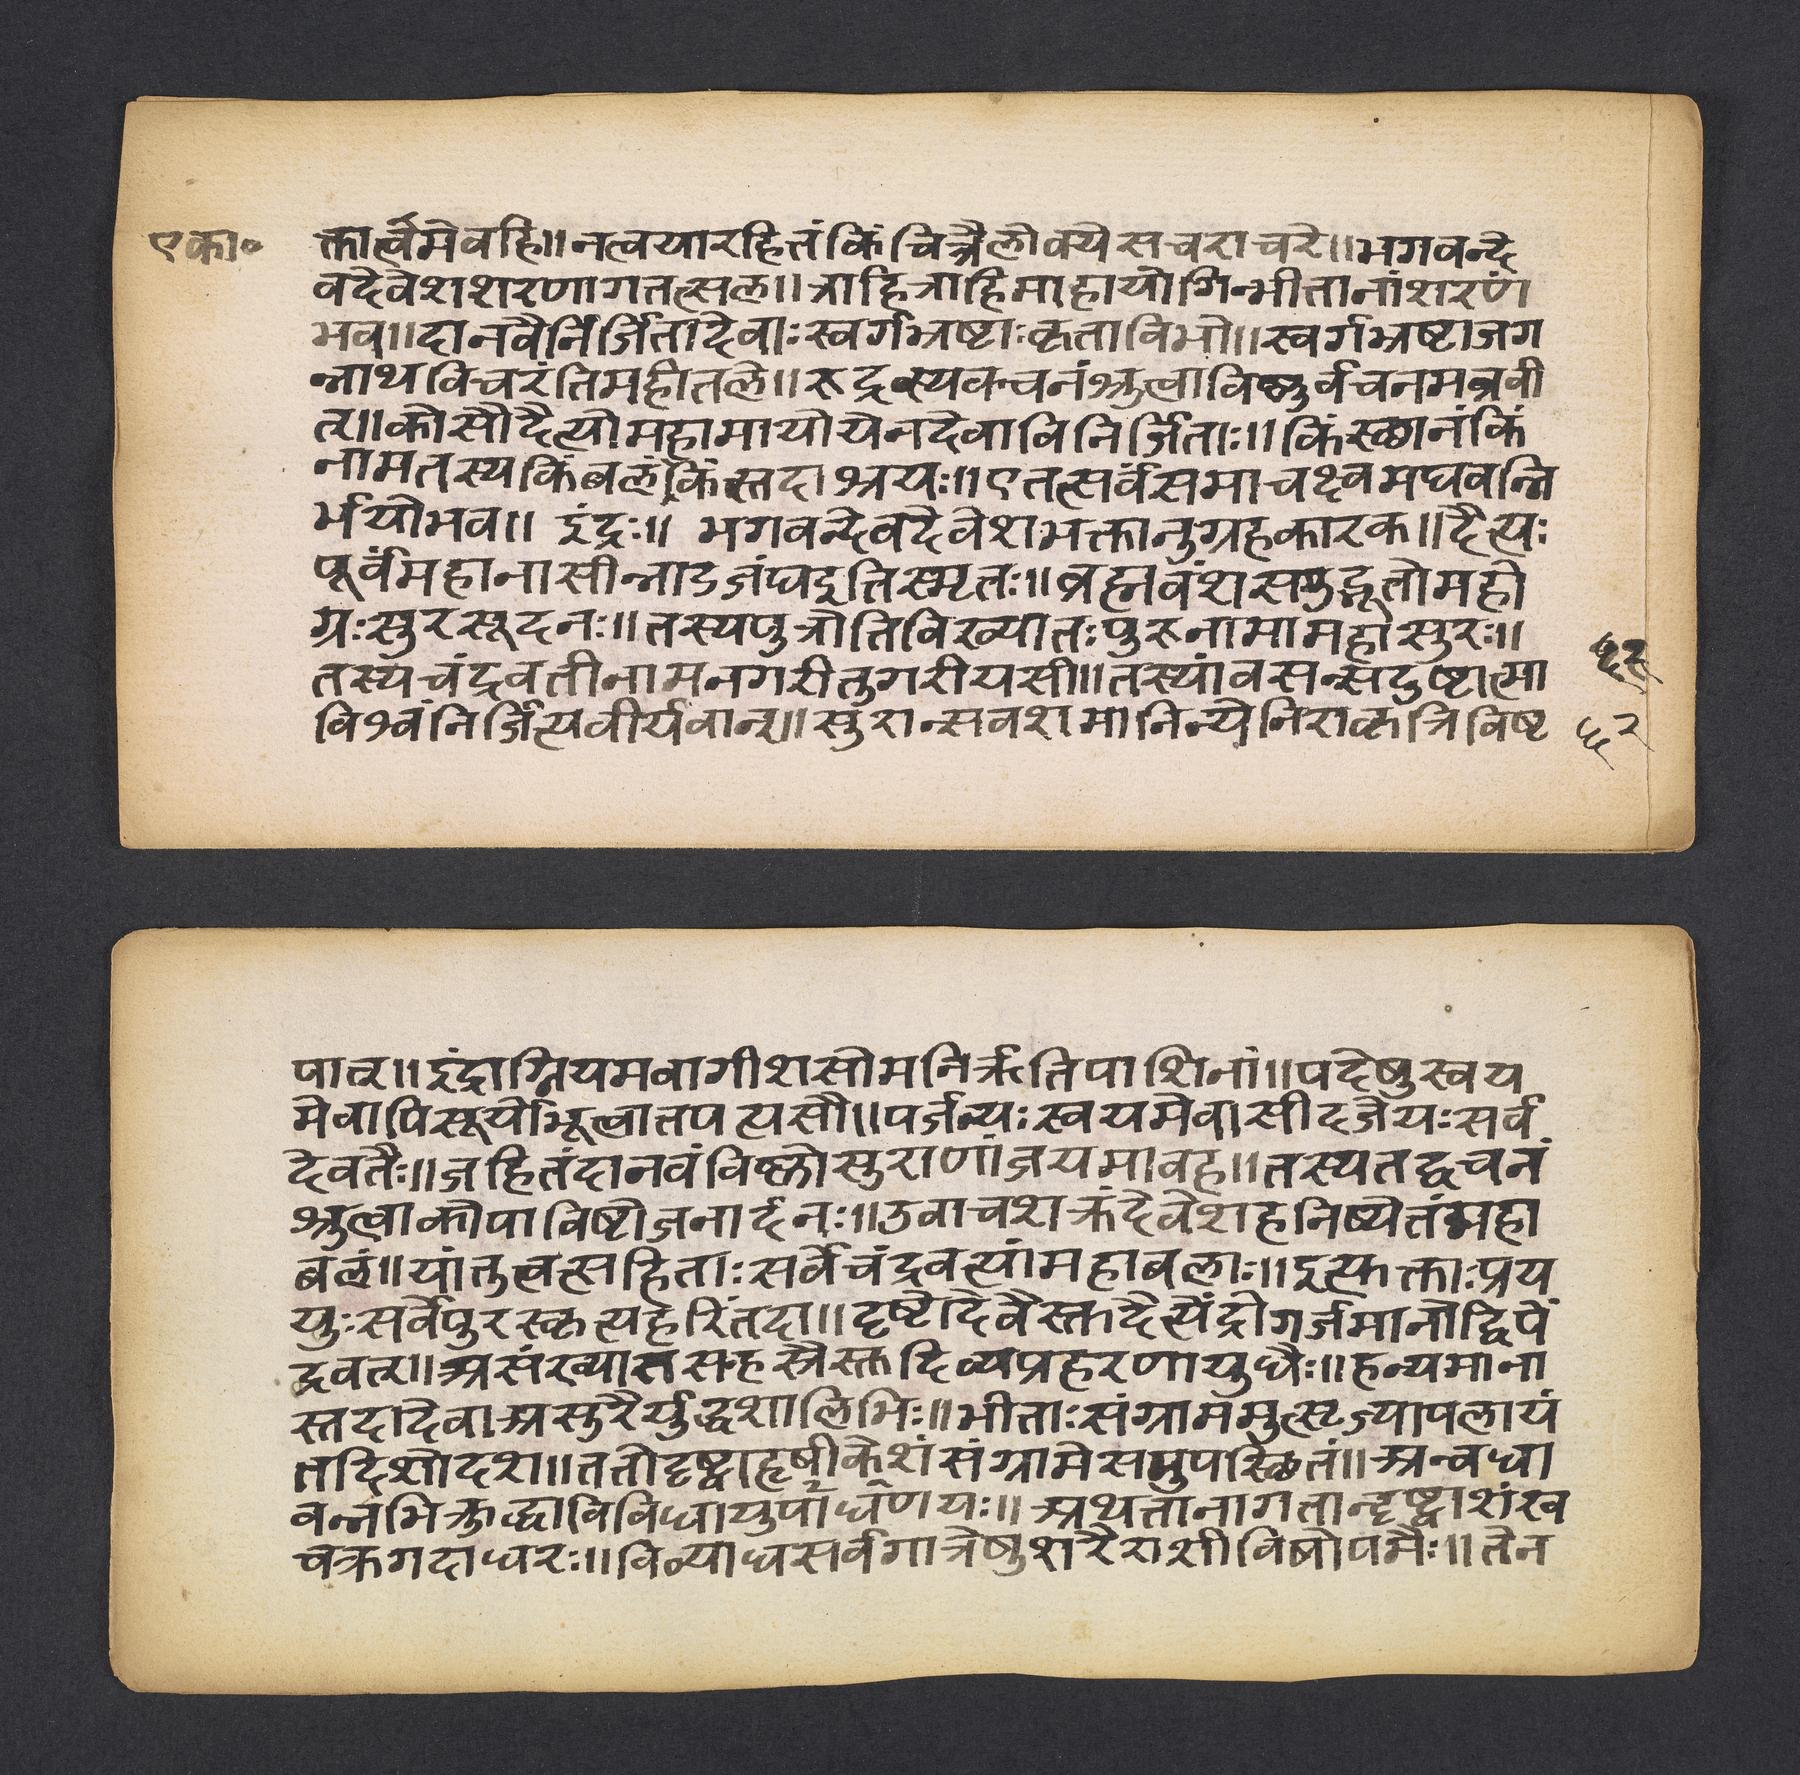 एका०
क्तात्वमेवहि॥नत्वयारहितंकिंचित्रैलोक्येसचराचरे॥भगवन्दे
वदेवेशशरणागतत्सल॥त्राहित्राहिमाहायोगिन्भीतानांशरणं
भव॥दानवैर्निर्जितादेवाःस्वर्गभ्रष्टाःकृताविभो॥स्वर्गभ्रष्टाजग
न्नाथविचरंतिमहीतले॥रुद्रस्यवचनंश्रुत्वाविष्णुर्वचनमब्रवी
त्॥कोसौदैत्योमहामायोयेनदेवाविनिर्जिताः॥किंस्छानंकिं
नामतस्यकिंबलंकिंस्तदाश्रयः॥एतत्सर्वंसमाचक्ष्वमघवन्नि
र्भयोभव॥ इंद्रः॥ भगवन्देवदेवेशभक्तानुग्रहकारक॥दैत्यः
पूर्वंमहानासीन्नाडजंघइतिस्मृतः॥ब्रह्मवंशसमुद्भूतोमहो
ग्रःसुरसूदनः॥तस्यपुत्रोतिविख्यातःपुरूनामामहासुरः॥
तस्यचंद्रवतीनामनगरीतुगरीयसी॥तस्यांवसन्सदुष्टात्मा
विश्वंनिर्जित्यवीर्यवान्॥सुरान्सवशमानिन्येनिराकृत्रिविष्ट
५२
५२
पात्॥इंद्राग्नियमवागीशसोमनिर्ऋतिपाशिनां॥पदेषुस्वय
मेवापिसूर्योभूत्वातपत्यसौ॥पर्जन्यःस्वयमेवासीदजेयःसर्व
देवतैः॥जहितंदानवंविष्णोसुराणांजयमावह॥तस्यतद्वचनं
श्रुत्वाकोपाविष्टोजनार्दनः॥उवाचशक्रंदेवेशहनिष्येतंमहा
बलं॥यांतुत्वत्सहिताःसर्वेचंद्रवत्यांमहाबलाः॥इत्युक्ताःप्रय
युःसर्वेपुरस्कृत्यहरिंतदा॥दृष्टोदेवैस्तुदैत्येंद्रोगर्जमानोद्विपें
द्रवत्॥असंख्यातसहस्रैस्तुदिव्यप्रहरणायुधैः॥हन्यमाना
स्तदादेवाअसुरैर्युद्धशालिभिः॥भीताःसंग्राममुत्सृज्यापलायं
तदिशोदश॥ततोदृष्ट्वाहृषीकेशंसंग्रामेसमुपस्छितं॥अन्वधा
वन्नभिक्रुद्धाविविधायुपार्घणयः॥अथतानागतान्दृष्ट्वाशंख
चक्रगदाधरः॥विव्याधसर्वगात्रेषुशरैराशीविषोपमैः॥तेन